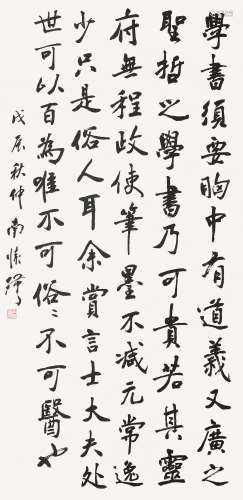 學書須要胸中有道義又廣之
聖哲之學書乃可貴若其靈
府無程政使筆墨不減元常逸
少只是俗人耳余嘗言士大夫處
世可以百為唯不可俗〻不可醫也
戊辰秋仲南懷瑾